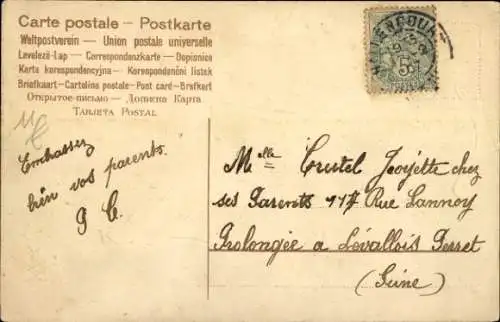 Carte postale — Postkarte
Weltpostverein — Union postale universelle
Levelezö-Lap — Correspondenzkarte — Dopisnice
Karta korespondencyjna — Korespondenční lístek
Briefkaart — Cartolina postale — Post card — Brefkort
Открытое письмо — Дописна Карта
Tarjeta Postal
5
Embrassez
bien vos parents.
Melle Cristel Joujette chez
ses Parents 117 Rue Lannoy
Prolongée a Lévallois Perret
(Seine)